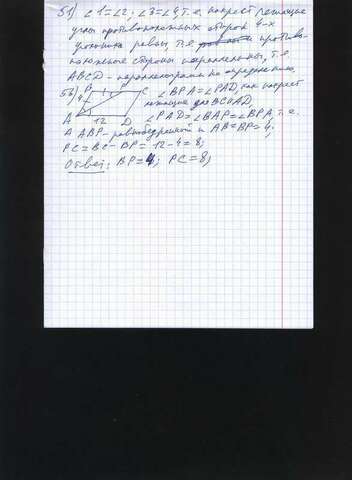 51) ∠1=∠2 · ∠3=∠4, т.е. накрест лежащие
углы противоположных сторон 4-х
угольника равны, т.е. противо-
положные стороны параллельны, т.е.
ABCD - параллелограмм по определению.
B P C
4
A 12 D
∠BPA=∠PAD, как накрест
лежащие для BC и AD,
∠PAD=∠BAP=∠BPA, т.е.
ABP - равнобедренный и AB=BP=4,
PC=BC-BP=12-4=8;
Ответ: BP=4; PC=8;